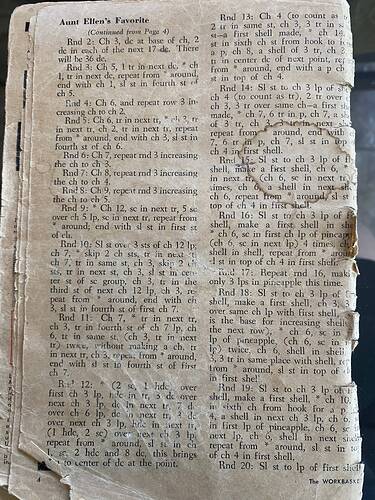 Aunt Ellen's Favorite
(Continued from Page 4)
Rnd 2: Ch 3, dc at base of ch, 2
dc in each of the next 17 dc. There
will be 36 dc.
Rnd 3: Ch 5, 1 tr in next dc, * ch
1, tr in next dc, repeat from * around,
end with ch 1, sl st in fourth st of
ch 5.
Rnd 4: Ch 6, and repeat row 3 in-
creasing ch to 2.
Rnd 5: Ch 6, tr in next tr, * ch 2, tr
in next tr, ch 2, tr in next tr, repeat
from * around, end with ch 3, sl st in
fourth st of ch 6.
Rnd 6: Ch 7, repeat rnd 3 increasing
the ch to 3.
Rnd 7: Ch 8, repeat rnd 3 increasing
the ch to 4.
Rnd 8: Ch 9, repeat rnd 3 increasing
the ch to 5.
Rnd 9: * Ch 12, sc in next tr, 5 sc
over ch 5 lp, sc in next tr, repeat from
* around, end with sl st in first st
of ch.
Rnd 10: Sl st over 3 sts of ch 12 lp,
ch 7, * skip 2 ch sts, tr in next st,
ch 7, tr in same st, ch 3, skip 2
sts, tr in next st, ch 3, sl st in cen-
ter st of sc group, ch 3, tr in the
third st of next ch 12 lp, ch 3, re-
peat from * around, end with ch
3, sl st in fourth st of first ch 7.
Rnd 11: Ch 7, * tr in next tr,
ch 3, tr in fourth st of ch 7 lp, ch
6, tr in same st, (ch 3, tr in next
tr) twice, without making a ch, tr
in next tr, ch 3, repeat from * around,
end with sl st in fourth st of first
ch 7.
12: (2 sc, 1 hdc over
first ch 3 lp, hdc in tr, 3 dc over
next ch 3 lp, dc in next tr, 7 dc
over ch 6 lp, dc in next tr, 3 dc
over next ch 3 lp, hdc in next tr,
(1 hdc, 2 sc) over next ch 3 lp,
repeat from * around, sl st in ch
sc, 2 hdc and 8 dc, this brings
to center of dc at the point.
4
Rnd 13: Ch 4 (to count as
2 tr in same st, 3 ch, 3 tr in s
st—a first shell made, * ch 14,
st in sixth ch st from hook to
a p, ch 8, a shell of 3 tr, ch 2,
tr in center dc of next point, rep
from * around, end with a p ch
st in top of ch 4.
Rnd 14: Sl st to ch 3 lp of f
ch 4 (to count as tr) 2 tr over
ch 3, 3 tr over same ch—a first sh
made, * ch 7, 6 tr in p, ch 7, a sh
of 3 tr, ch 3, 3 tr in next shell
repeat from around, end with
7, 6 tr p, ch 7, sl st in top
ch 4 first shell.
Rnd 15: Sl st to ch 3 lp of f
shell, make a first shell, ch 6,
in next tr, (ch 6, sc in next tr
times, ch 6, shell in next shell,
repeat from * around, sl st in
top of ch 4 in first shell.
Rnd 16: Sl st to ch 3 lp of f
shell, make a first shell in sh
* ch 6, sc in first ch lp of pineapp
(ch 6, sc in next lp) 4 times, ch
shell in shell, repeat from * arou
st in top of ch 4 in first shell.
Rnd 17: Repeat rnd 16, maki
only 3 lps in pineapple this time.
Rnd 18: Sl st to ch 3 lp of f
shell, make a first shell, ch 3, 3
over same ch lp with first shell,
is the base for increasing shells
the next row), * ch 6, sc in
lp of pineapple, (ch 6, sc in
lp) twice, ch 6, shell in shell,
3, 3 tr in same place with shell, re
from * around, sl st in top of
in first shell
Rnd 19: Sl st to ch 3 lp of f
shell, make a first shell, * ch 10,
sixth ch from hook for a p
4, a shell in next ch 3 lp, ch 6,
in first lp of pineapple, ch 6, sc
next lp, ch 6, shell in next shell
repeat from * around, sl st in to
of ch 4 in first shell.
Rnd 20: Sl st to lp of first shell
The WORKBASKE